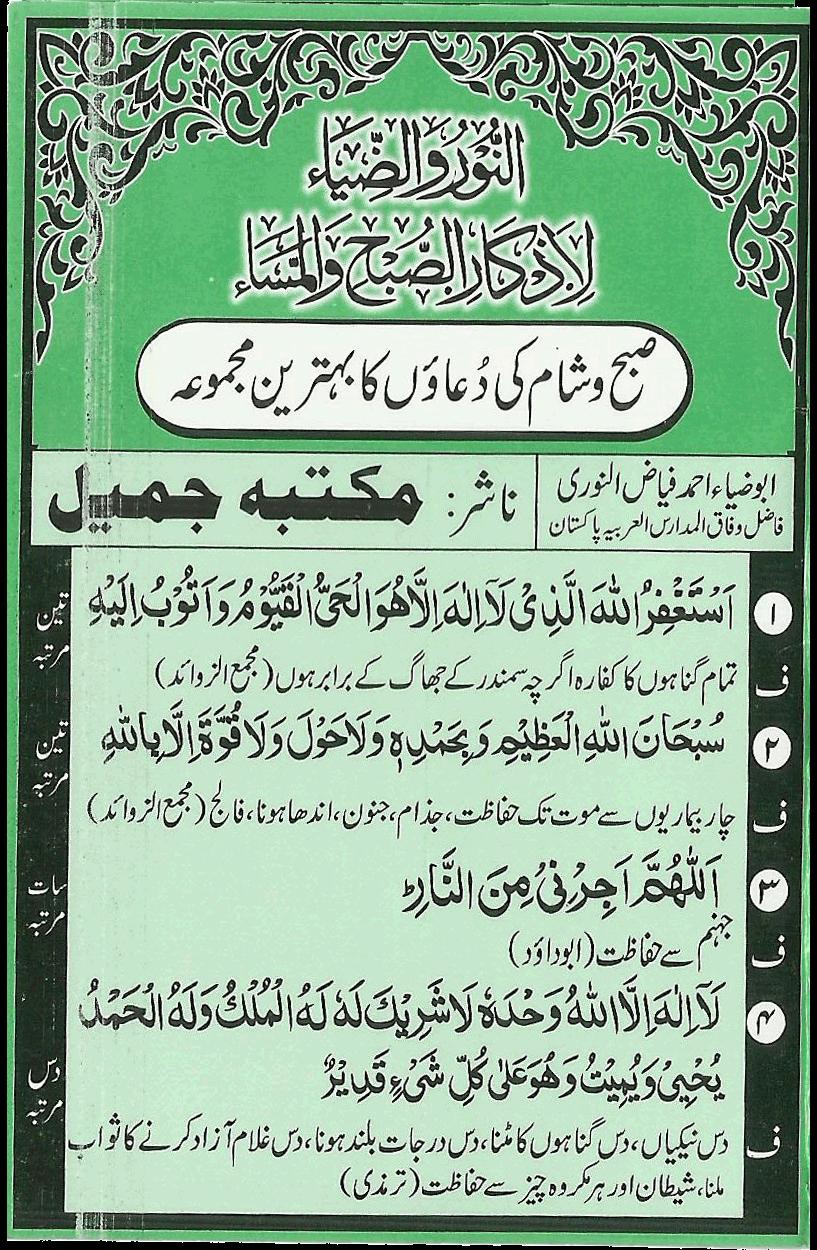 النُّوْرُ وَالضِّيَاء
لِاَذْكَارِ الصُّبَاحِ وَالْمَسَاء
صبح و شام کی دُعاؤں کا بہترین مجموعہ
ابو ضیاء احمد فیاض النوری
فاضل وفاق المدارس العربیہ پاکستان
ناشر: مکتبہ جمیل
۱ اَسْتَغْفِرُ اللّٰهَ الَّذِیْ لَآ اِلٰهَ اِلَّا هُوَ الْحَیُّ الْقَیُّوْمُ وَ اَتُوْبُ اِلَیْهِ
تین مرتبہ
ف تمام گناہوں کا کفارہ اگرچہ سمندر کے جھاگ کے برابر ہوں (مجمع الزوائد)
۲ سُبْحَانَ اللّٰهِ الْعَظِیْمِ وَ بِحَمْدِهٖ وَلَا حَوْلَ وَلَا قُوَّةَ اِلَّا بِاللّٰهِ
تین مرتبہ
ف چار بیماریوں سے موت تک حفاظت، جذام، جنون، اندھا ہونا، فالج (مجمع الزوائد)
۳ اَللّٰهُمَّ اَجِرْنِیْ مِنَ النَّارِط
سات مرتبہ
ف جہنم سے حفاظت (ابوداؤد)
۴ لَآ اِلٰهَ اِلَّا اللّٰهُ وَحْدَهٗ لَا شَرِیْكَ لَهٗ لَهُ الْمُلْكُ وَلَهُ الْحَمْدُ
یُحْیِیْ وَ یُمِیْتُ وَ هُوَ عَلٰی كُلِّ شَیْءٍ قَدِیْرٌ
دس مرتبہ
ف دس نیکیاں، دس گناہوں کا مٹنا، دس درجات بلند ہونا، دس غلام آزاد کرنے کا ثواب
ملنا، شیطان اور ہر مکروہ چیز سے حفاظت (ترمذی)